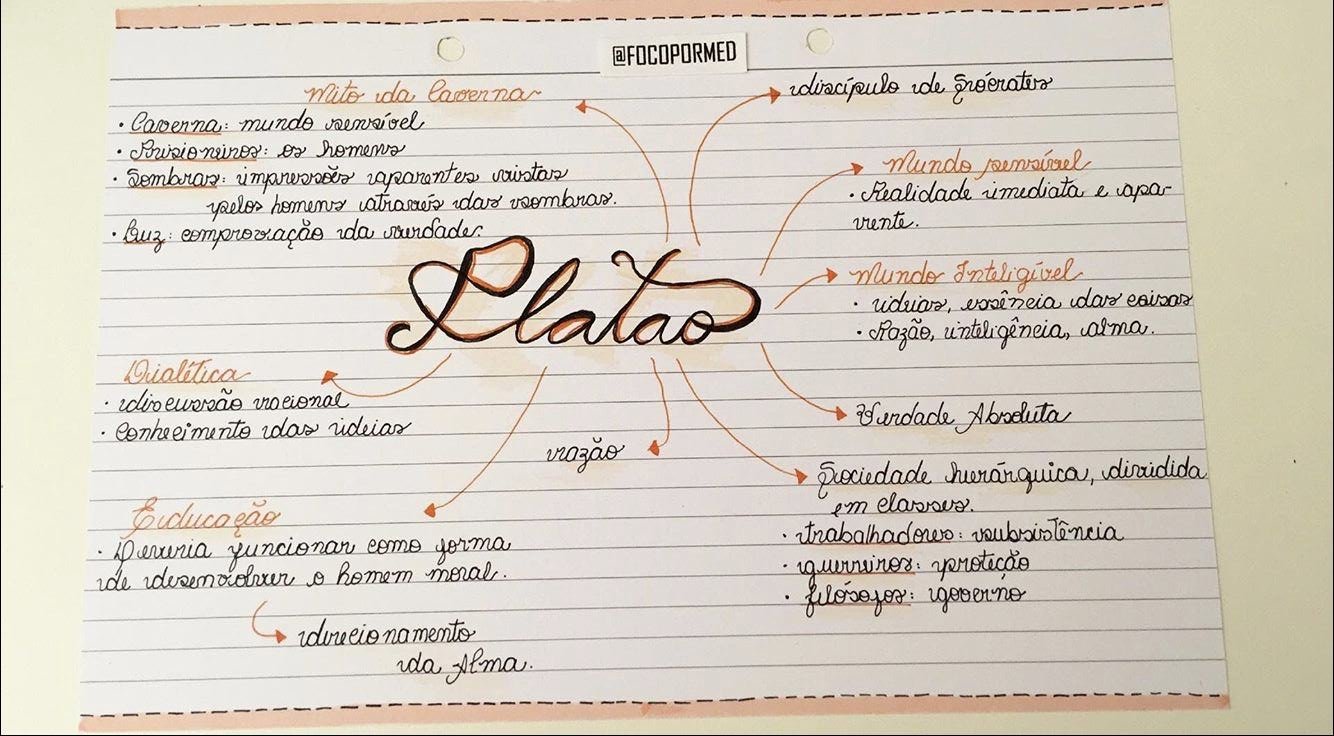 @FOCOPORMED
Mito da Caverna
• Caverna: mundo sensível
• Prisioneiros: os homens
• Sombras: impressões aparentes vistas
pelos homens através das sombras.
• Luz: comprovação da verdade.
discípulo de Sócrates
Mundo sensível
• Realidade imediata e apa-
rente.
Mundo Inteligível
• ideias, essência das coisas
• Razão, inteligência, alma.
Platão
Dialética
• discussão racional
• Conhecimento das ideias
razão
Verdade Absoluta
Sociedade hierárquica, dividida
em classes.
• trabalhadores: subsistência
• guerreiros: proteção
• filósofos: governo
Educação
• Deveria funcionar como forma
de desenvolver o homem moral.
direcionamento
da Alma.